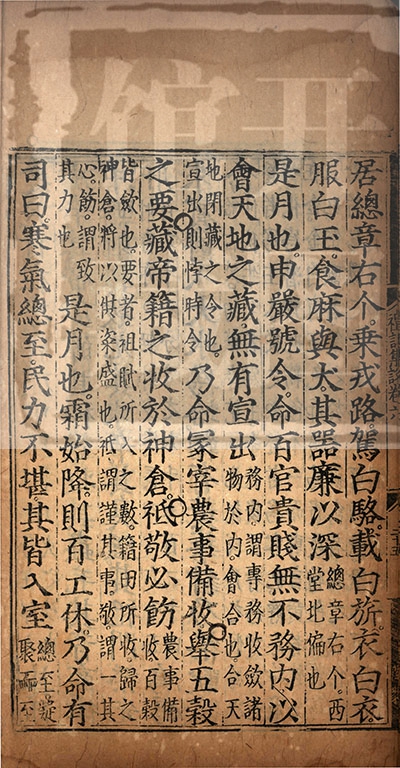 居總章右个。乘戎路。駕白駱。載白旂。衣白衣。
服白玉。食麻與犬。其器廉以深
總章右个。西
堂北偏也
是月也。申嚴號令。命百官貴賤無不務內。以
會天地之藏。無有宣出
務內。謂專務收斂諸
物於內。會合也。合天
地閉藏之令也。
宣出則悖時令
乃命冢宰。農事備收。舉五穀
之要。藏帝籍之收於神倉。祗敬必飭
農事備
收。百穀
皆斂也。要者。租賦所入之數。籍田所收。歸之
神倉。將以供粢盛也。祗謂謹其事。敬謂一其
心。飭。謂致
其力也
是月也。霜始降。則百工休。乃命有
司曰。寒氣總至。民力不堪。其皆入室
總至。凝
聚而至